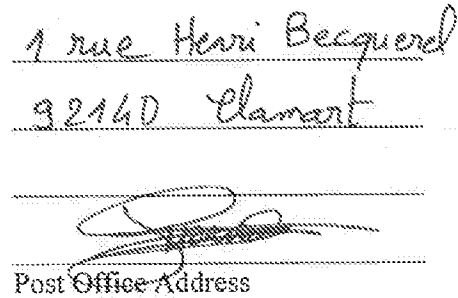 1 rue Henri Becquerel
92140 Clamart
Post Office Address